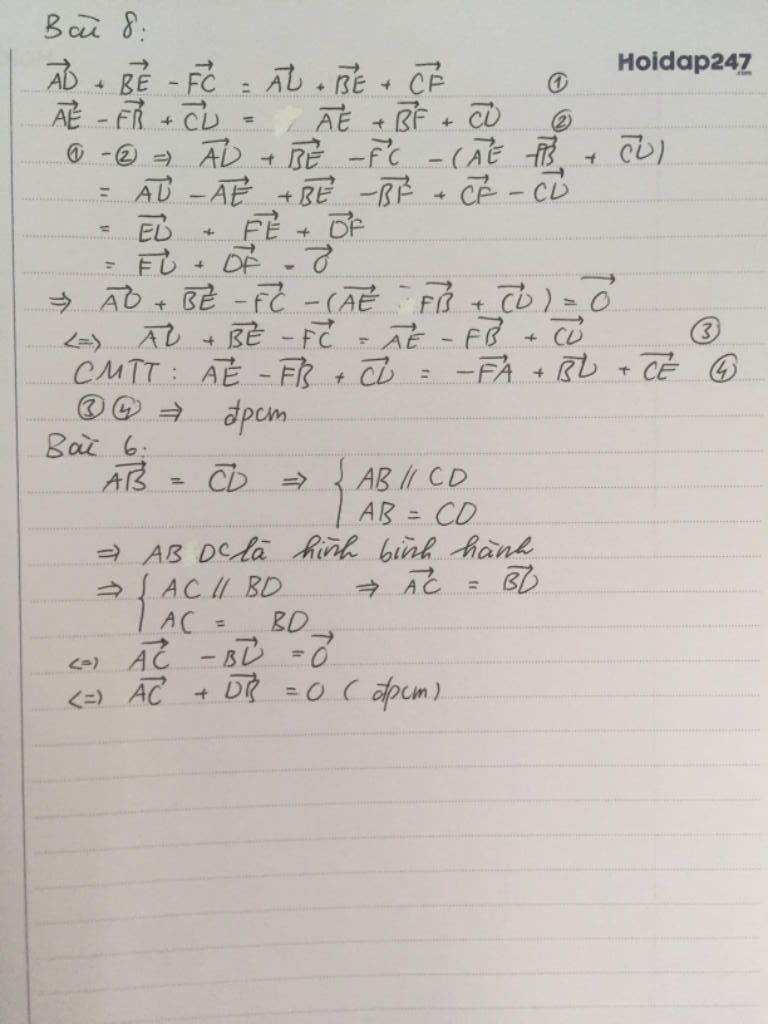 Bài 8:
Hoidap247.com
$\overrightarrow{AD} + \overrightarrow{BE} - \overrightarrow{FC} = \overrightarrow{AD} + \overrightarrow{BE} + \overrightarrow{CF}$ ①
$\overrightarrow{AE} - \overrightarrow{FB} + \overrightarrow{CD} = \overrightarrow{AE} + \overrightarrow{BF} + \overrightarrow{CD}$ ②
① - ② ⇒ $\overrightarrow{AD} + \overrightarrow{BE} - \overrightarrow{FC} - (\overrightarrow{AE} - \overrightarrow{FB} + \overrightarrow{CD})$
= $\overrightarrow{AD} - \overrightarrow{AE} + \overrightarrow{BE} - \overrightarrow{BF} + \overrightarrow{CF} - \overrightarrow{CD}$
= $\overrightarrow{ED} + \overrightarrow{FE} + \overrightarrow{DF}$
= $\overrightarrow{FD} + \overrightarrow{DF} = \overrightarrow{0}$
⇒ $\overrightarrow{AD} + \overrightarrow{BE} - \overrightarrow{FC} - (\overrightarrow{AE} - \overrightarrow{FB} + \overrightarrow{CD}) = \overrightarrow{0}$
<=> $\overrightarrow{AD} + \overrightarrow{BE} - \overrightarrow{FC} = \overrightarrow{AE} - \overrightarrow{FB} + \overrightarrow{CD}$ ③
CMTT: $\overrightarrow{AE} - \overrightarrow{FB} + \overrightarrow{CD} = -\overrightarrow{FA} + \overrightarrow{BD} + \overrightarrow{CE}$ ④
③ ④ ⇒ đpcm
Bài 6:
$\overrightarrow{AB} = \overrightarrow{CD}$ ⇒ { AB // CD
AB = CD
⇒ ABDC là hình bình hành
⇒ { AC // BD ⇒ $\overrightarrow{AC} = \overrightarrow{BD}$
AC = BD
<=> $\overrightarrow{AC} - \overrightarrow{BD} = \overrightarrow{0}$
<=> $\overrightarrow{AC} + \overrightarrow{DB} = 0$ (đpcm)